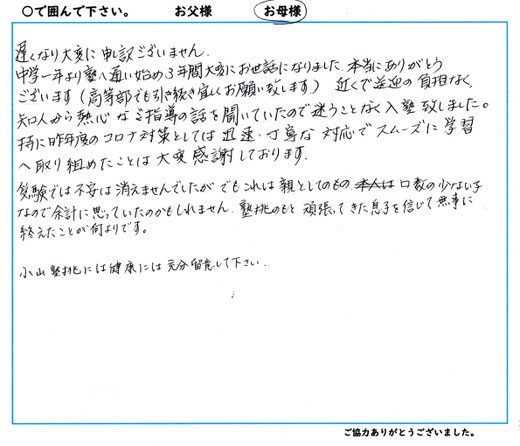 ○で囲んで下さい。 お父様 お母様
遅くなり大変に申訳ございません。
中学一年より塾へ通い始め3年間大変にお世話になりました。本当にありがとう
ございます(高等部でも引き続き宜しくお願い致します) 近くで送迎の負担なく、
知人から熱心なご指導の話を聞いていたので迷うことなく入塾致しました。
特に昨年度のコロナ対策としては迅速・丁寧な対応でスムーズに学習
へ取り組めたことは大変感謝しております。
受験では不安は消えませんでしたが でもこれは親としてのもの、本人は口数の少ない子
なので余計に思っていたのかもしれません。塾挑のもと頑張ってきた息子を信じて無事に
終えたことが何よりです。
小山塾挑には健康には充分留意して下さい。
ご協力ありがとうございました。